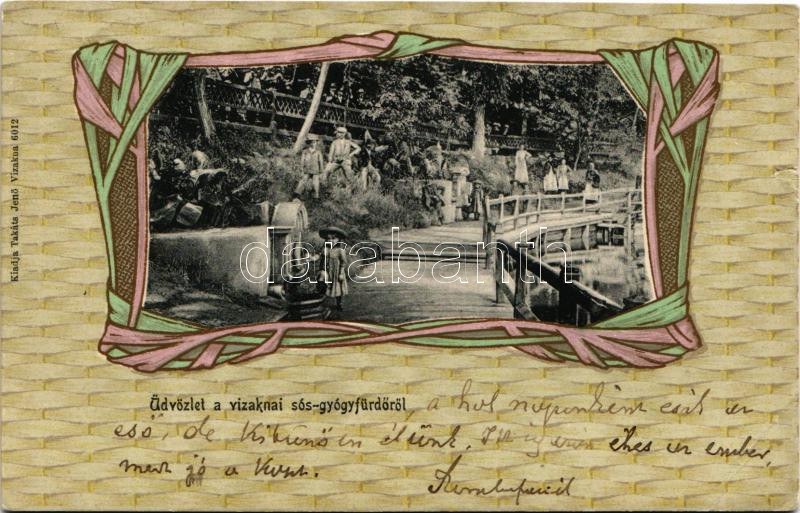 Kiadja Takáts Jenő Vizakna 6012
darabanth
Üdvözlet a vizaknai sós-gyógyfürdőről, a hol naponként esik az
eső, de kitünően élünk. Itt igazán éhes az ember,
mert jó a koszt.